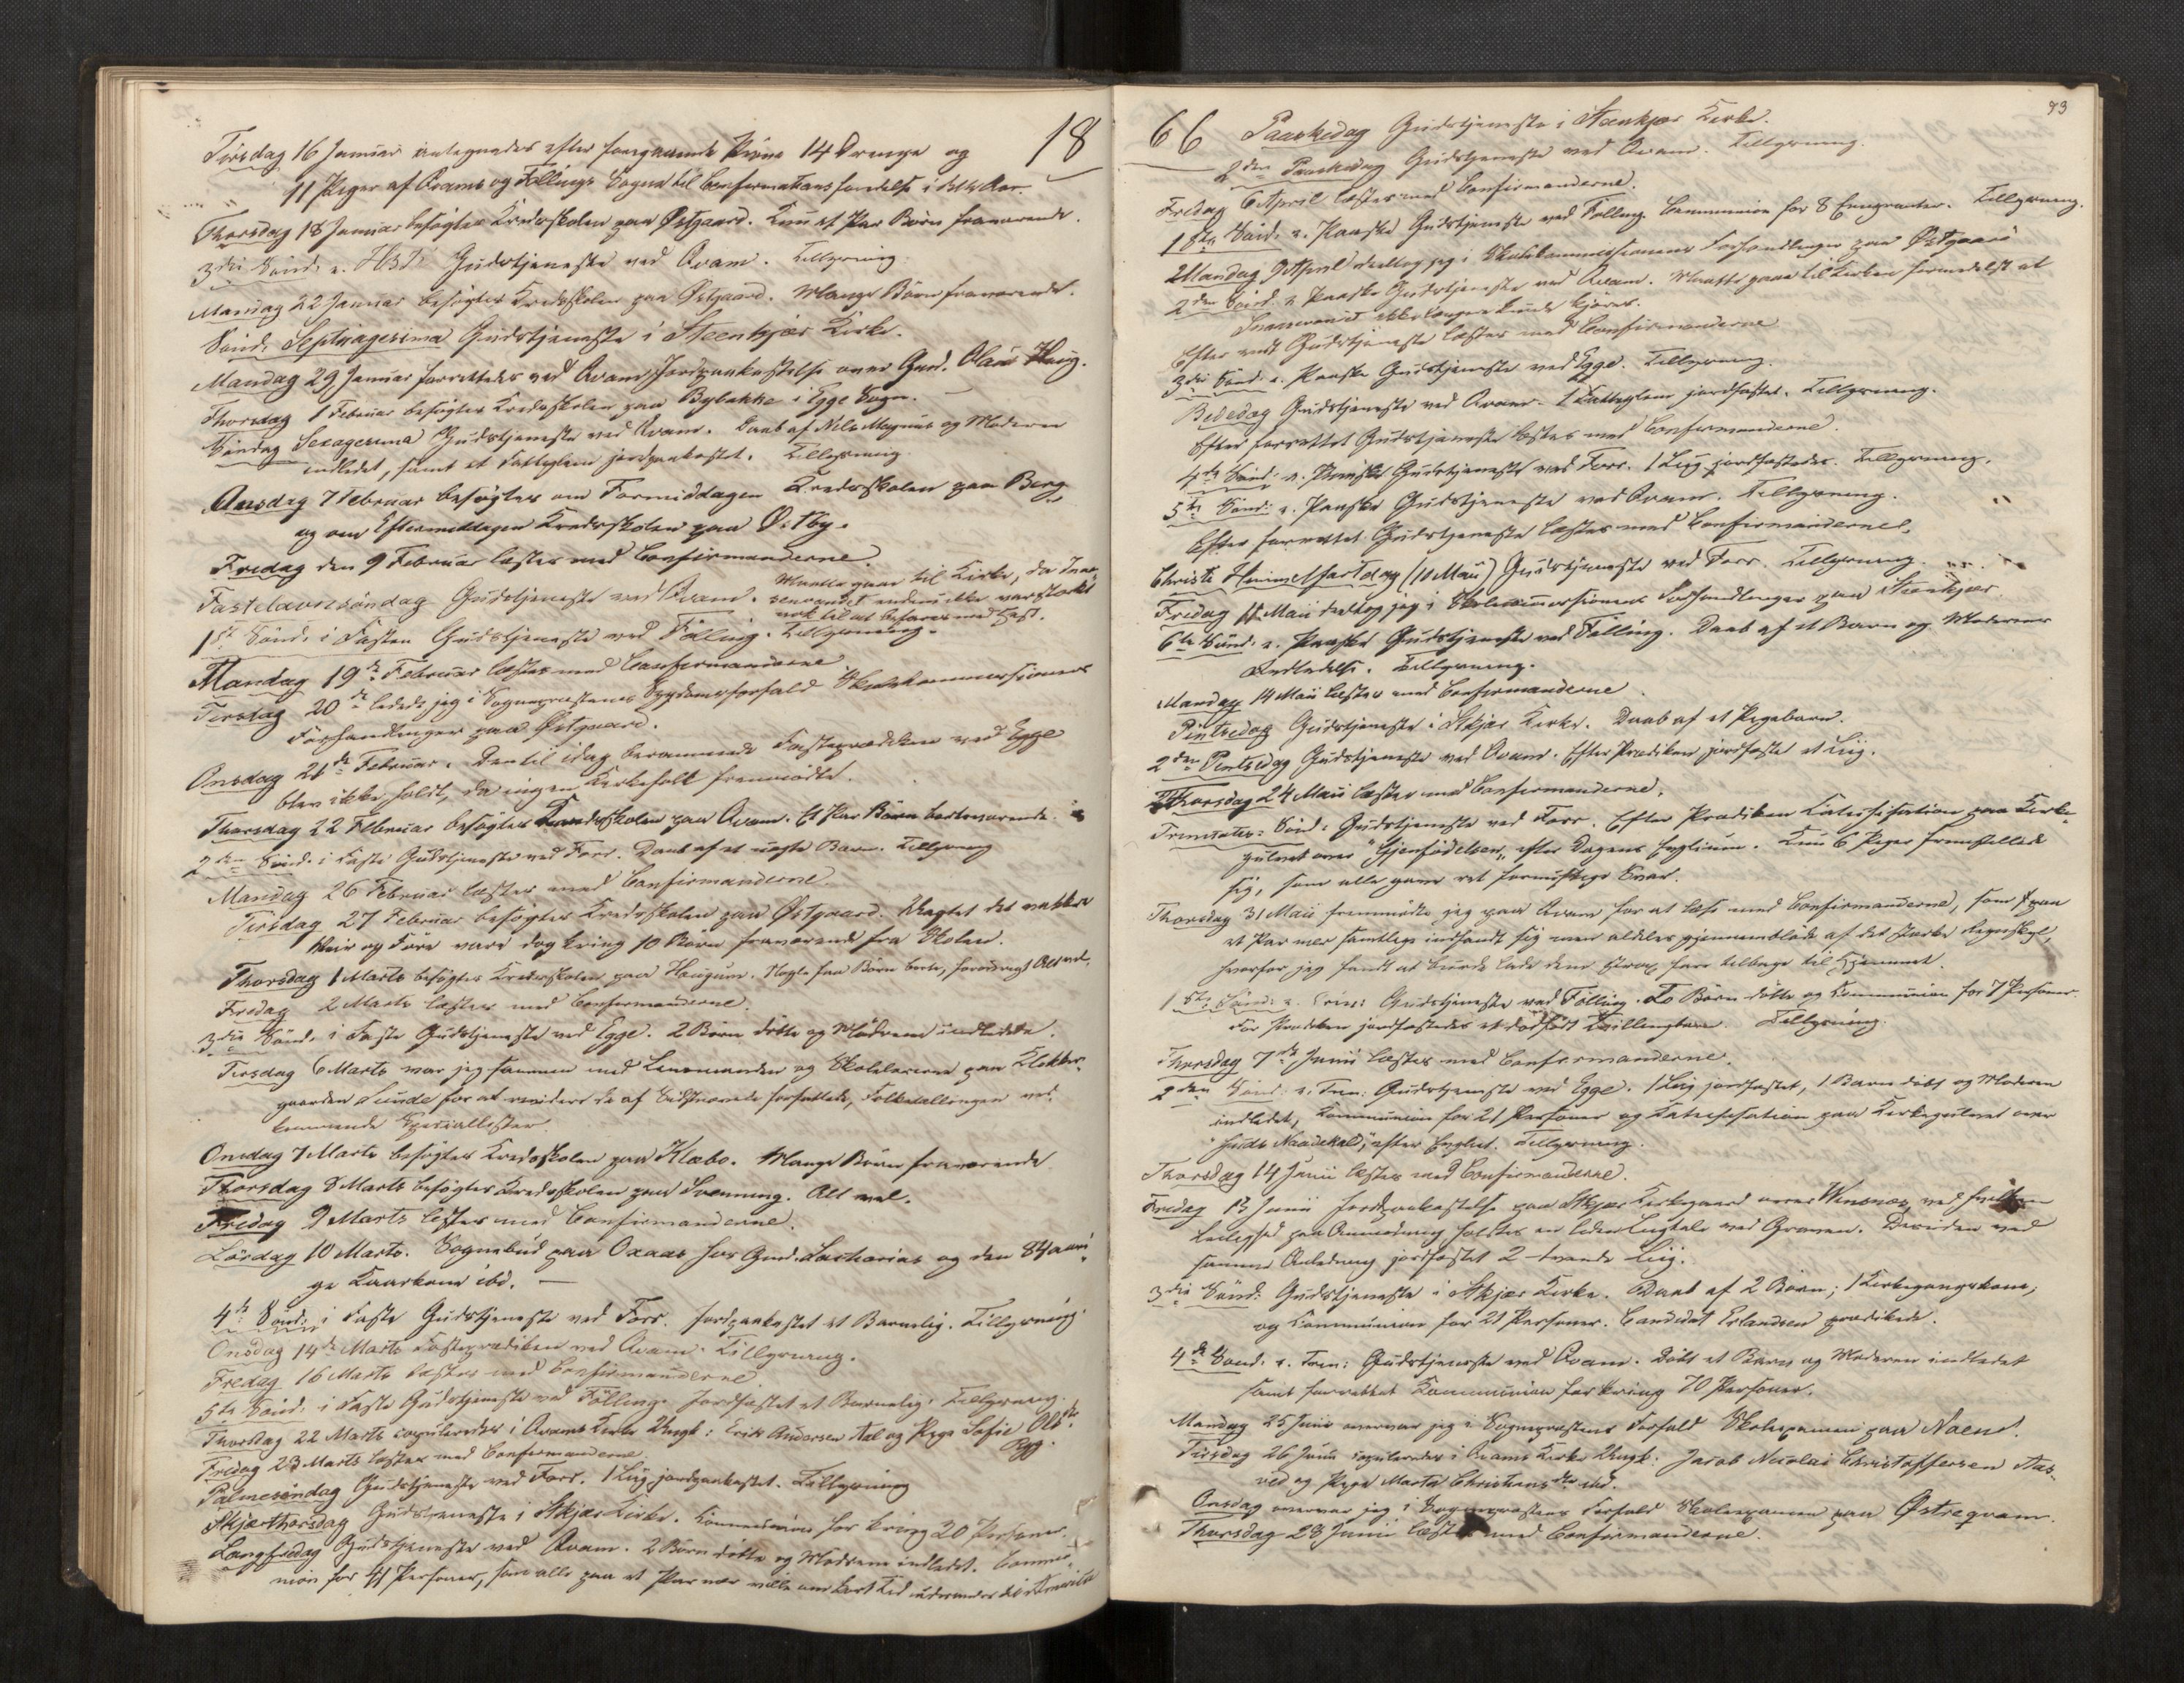 18
Tirsdag 16 Januar antegnedes efter foregaaende Prøve 14 Drenge og
11 Piger af Qvams og Føllings Sogne til Confirmationsforberedelse i dette Aar.
Thorsdag 18 Januar besøgtes Kredsskolen paa Østgaard. Kun et Par Børn fraværende.
3die Sönd. e. H3K. Gudstjeneste ved Qvam. Tellysning.
Mandag 22 Januar besøgtes Kredsskolen paa Østgaard. Mange Børn fraværende.
Sönd. Septuagesima Gudstjeneste i Steenkjær Kirke.
Mandag 29 Januar forrettedes ved Qvam Jordpaakastelse over Gmd. Olaus Haug.
Thorsdag 1 Februar besøgtes Kredsskolen paa Bylakke i Egge Sogn.
Söndag Sexagesima Gudstjeneste ved Qvam. Daab af Nils Magnus og Moderen
indledet, samt et Fattiglem jordpaakastet. Tellysning.
Onsdag 7 Februar besøgtes om Formiddagen Kredsskolen paa Berg
og om Eftermiddagen Kredsskolen paa Østby.
Fredag den 9 Februar læstes med Confirmanderne.
Fastelavnsöndag Gudstjeneste ved Qvam. Maatte gaae til Kirke, da Snaa-
senvandet endnu ikke var stærkt
nok til at befares med Hest.
1ste Sönd. i Fasten Gudstjeneste ved Fölling. Tellysning.
Mandag 19de Februar læstes med Confirmanderne
Tirsdag 20de ledede jeg i Sognepræstens Sygdomsforfald Skolekommissionens
Forhandlinger paa Østgaard.
Onsdag 21de Februar. Den til idag berammede Fasteprædiken ved Egge
blev ikke holdt, da ingen Kirkefolk fremmødte.
Thorsdag 22 Februar besøgtes Kredsskolen paa Qvam. Et Par Børn bortværende.
2den Sönd. i Faste Gudstjeneste ved Forr. Daab af et uægte Barn. Tellysning
Mandag 26 Februar læstes med Confirmanderne.
Tirsdag 27 Februar besøgtes Kredsskolen paa Østgaard. Uagtet det vakkre
Veir og Føre vare dog kring 10 Børn fraværende fra Skolen.
Thorsdag 1 Marts besøgtes Kredsskolen paa Haugum. Nogle faa Børn borte, forøvrigt Alt vel.
Fredag 2 Marts læstes med Confirmanderne.
3die Sönd. i Faste Gudstjeneste ved Egge. 2 Børn døbte og Mødrene indledede.
Tirsdag 6 Marts var jeg sammen med Lensmanden og Skolelærerne paa Klokker-
gaarden Lunde for at revidere de af Sidstnævnte forfattede, Folketællingen ved-
kommende Speciallister.
Onsdag 7 Marts besøgtes Kredsskolen paa Klæbo. Mange Børn fraværende
Thorsdag 8 Marts besøgtes Kredsskolen paa Svenning. Alt vel.
Fredag 9 Marts læstes med Confirmanderne.
Lördag 10 Marts. Sognebud paa Oxaas hos Gmd. Zacharias og den 84aari-
ge Kaarkone ibd.
4de Sönd. i Faste Gudstjeneste ved Forr. Jordpaakastet et Barnelig. Tellysning.
Onsdag 14de Marts Fasteprædiken ved Qvam. Tellysning.
Fredag 16 Marts læstes med Confirmanderne
5te Sönd. i Faste Gudstjeneste ved Fölling. Jordfæstet et Barnelig. Tellysning.
Thorsdag 22 Marts copuleredes i Qvams Kirke Ungk: Erik Andersen Aal og Pige Sofie Olsdtr
Rygg.
Fredag 23 Marts læstes med Confirmanderne
Palmesöndag Gudstjeneste ved Forr. 1 Liig jordpaakastet. Tellysning
Skjærthorsdag Gudstjeneste i Stkjær Kirke. Kommunion for kring 20 Personer.
Langfredag Gudstjeneste ved Qvam. 2 Børn døbte og Mødrene indledet. Commu-
nion for 41 Personer, som alle paa et Par nær ville om kort Tid udvandre til Amerika
73
66 Paaskedag Gudstjeneste i Steenkjær Kirke.
2den Paaskedag Gudstjeneste ved Qvam. Tellysning.
Fredag 6 April læstes med Confirmanderne.
1ste Sönd. e. Paaske Gudstjeneste ved Fölling. Communion for 8 Emigranter. Tellysning.
Mandag 9 April deeltog jeg i Skolekommissionens Forhandlinger paa Østgaard
2den Sönd. e. Paaske Gudstjeneste ved Qvam. Maatte gaae til Kirken formedelst at
Snaasevandet ikke længere kunde kjøres.
Efter endt Gudstjeneste læstes med Confirmanderne
3die Sönd. e. Paaske Gudstjeneste ved Egge. Tellysning.
Bededag Gudstjeneste ved Qvam. 1 Fattiglem jordfæstet. Tellysning.
Efter forrettet Gudstjeneste læstes med Confirmanderne.
4de Sönd. e. Paaske Gudstjeneste ved Forr. 1 Liig jordfæstedes. Tellysning.
5te Sönd. e. Paaske Gudstjeneste ved Qvam. Tellysning.
Efter forrettet Gudstjeneste læstes med Confirmanderne.
Christi Himmelfartsdag (10 Mai) Gudstjeneste ved Forr. Tellysning.
Fredag 11 Mai deeltog jeg i Skolecommissionens Forhandlinger paa Steenkjær.
6te Sönd. e. Paaske Gudstjeneste ved Fölling. Daab af et Barn og Moderens
Indledelse. Tellysning.
Mandag 14 Mai læstes med Confirmanderne.
Pintsedag Gudstjeneste i Stkjær Kirke. Daab af et Pigebarn.
2den Pintsedag Gudstjeneste ved Qvam. Efter Prædiken jordfæstet et Liig.
Thorsdag 24 Mai læstes med Confirmanderne.
Trinitatis: Sönd: Gudstjeneste ved Forr. Efter Prædiken Katechisation paa Kirke-
gulvet over "Gjenfödelsen" efter Dagens Evglium. Kun 6 Piger fremstillede
sig, som alle gave ret fornuftige Svar.
Thorsdag 31 Mai fremmødte jeg paa Qvam for at læse med Confirmanderne, som paa
et Par nær samtlige indfandt sig men aldeles gjennembløde af det stærke Regnskyl,
hvorfor jeg fandt at burde lade dem strax fare tilbage til Hjemmet.
1ste Sönd. e. Trin: Gudstjeneste ved Fölling. To Børn døbte og Kommunion for 7 Personer.
Før Prædiken jordfæstedes et dødfødt Tvillingbarn. Tellysning.
Thorsdag 7de Juni læstes med Confirmanderne.
2den Sönd: e. Trin: Gudstjeneste ved Egge. 1 Liig jordfæstet, 1 Barn døbt og Moderen
indledet, Kommunion for 21 Personer og Katechisation paa Kirkegulvet over
"Guds Naadekald", efter Evgliet. Tellysning.
Thorsdag 14 Juni læstes med Confirmanderne.
Fredag 15 Juni Jordpaakastelse paa Stkjær Kirkegaard over Winsnæs, ved hvilken
Leilighed paa Anmodning holdtes en liden Liigtale ved Graven. Desuden ved
samme Anledning jordfæstet 2 - tvende Liig.
3die Sönd: Gudstjeneste i Stkjær Kirke. Daab af 2 Børn; 1 Kirkegangskone;
og Kommunion for 21 Personer. Candidat Erlandsen prædikede.
4de Sönd. e. Trin: Gudstjeneste ved Qvam. Døbt et Barn og Moderen indledet
samt forrettet Kommunion for kring 70 Personer.
Mandag 25 Juni overvar jeg i Sognepræstens Forfald Skoleexamen paa Naen.
Tirsdag 26 Juni copuleredes i Qvams Kirke Ungk: Jacob Nicolai Christoffersen Aas-
ved og Pige Marta Christiansdtr ibd.
Onsdag overvar jeg i Sognepræstens Forfald Skoleexamen paa Østreqvam.
Thorsdag 28 Juni læstes med Confirmanderne.